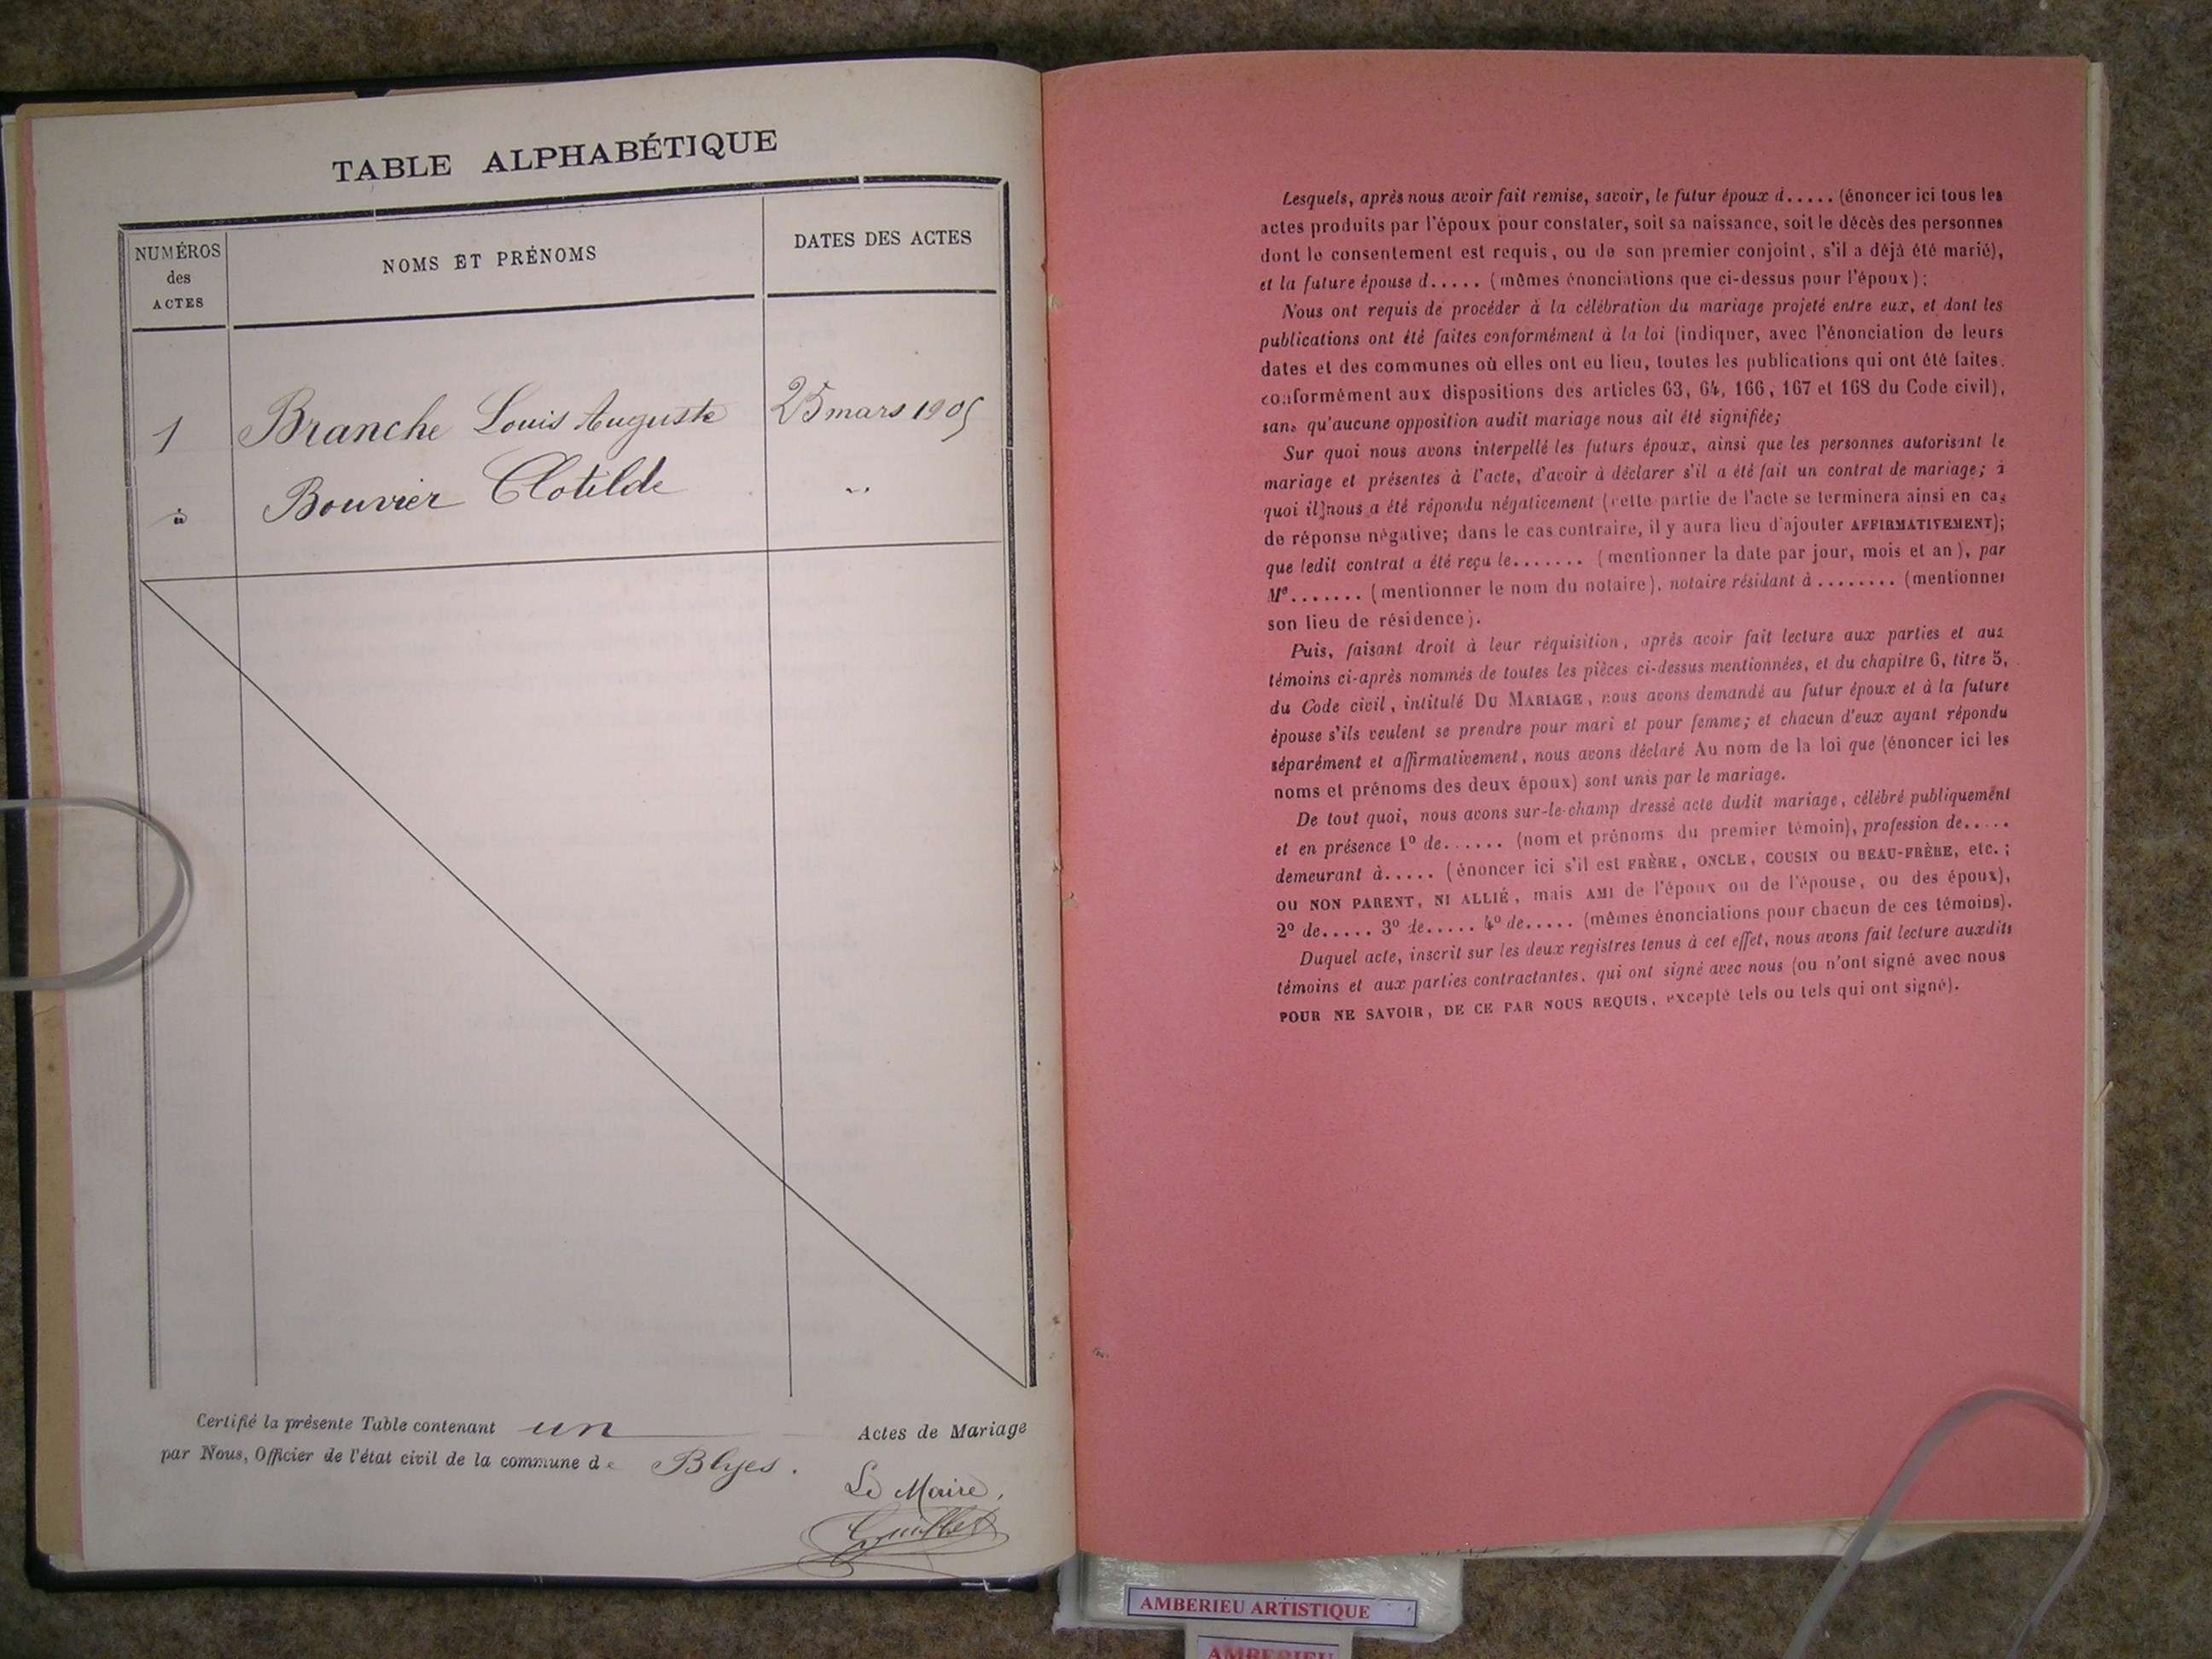 TABLE ALPHABÉTIQUE
NUMÉROS
des
ACTES
NOMS ET PRÉNOMS
DATES DES ACTES
1 Branche Louis Auguste 25 mars 1905
Bouvier Clotilde "
Certifié la présente Table contenant un Actes de Mariage
par Nous, Officier de l'état civil de la commune de Blyes.
Le Maire,
Lesquels, après nous avoir fait remise, savoir, le futur époux d..... (énoncer ici tous les
actes produits par l'époux pour constater, soit sa naissance, soit le décès des personnes
dont le consentement est requis, ou de son premier conjoint, s'il a déjà été marié),
et la future épouse d..... (mêmes énonciations que ci-dessus pour l'époux);
Nous ont requis de procéder à la célébration du mariage projeté entre eux, et dont les
publications ont été faites conformément à la loi (indiquer, avec l'énonciation de leurs
dates et des communes où elles ont eu lieu, toutes les publications qui ont été faites.
conformément aux dispositions des articles 63, 64, 166, 167 et 168 du Code civil),
sans qu'aucune opposition audit mariage nous ait été signifiée;
Sur quoi nous avons interpellé les futurs époux, ainsi que les personnes autorisant le
mariage et présentes à l'acte, d'avoir à déclarer s'il a été fait un contrat de mariage; à
quoi il]nous a été répondu négativement (cette partie de l'acte se terminera ainsi en cas
de réponse négative; dans le cas contraire, il y aura lieu d'ajouter AFFIRMATIVEMENT);
que ledit contrat a été reçu le....... (mentionner la date par jour, mois et an), par
Me....... (mentionner le nom du notaire), notaire résidant à ........ (mentionner
son lieu de résidence).
Puis, faisant droit à leur réquisition, après avoir fait lecture aux parties et aux
témoins ci-après nommés de toutes les pièces ci-dessus mentionnées, et du chapitre 6, titre 5,
du Code civil, intitulé DU MARIAGE, nous avons demandé au futur époux et à la future
épouse s'ils veulent se prendre pour mari et pour femme; et chacun d'eux ayant répondu
séparément et affirmativement, nous avons déclaré Au nom de la loi que (énoncer ici les
noms et prénoms des deux époux) sont unis par le mariage.
De tout quoi, nous avons sur-le-champ dressé acte dudit mariage, célébré publiquement
et en présence 1º de...... (nom et prénoms du premier témoin), profession de.....
demeurant à..... (énoncer ici s'il est FRÈRE, ONCLE, COUSIN OU BEAU-FRÈRE, etc.;
OU NON PARENT, NI ALLIÉ, mais AMI de l'époux ou de l'épouse, ou des époux),
2º de..... 3º de..... 4º de..... (mêmes énonciations pour chacun de ces témoins).
Duquel acte, inscrit sur les deux registres tenus à cet effet, nous avons fait lecture auxdits
témoins et aux parties contractantes, qui ont signé avec nous (ou n'ont signé avec nous
POUR NE SAVOIR, DE CE PAR NOUS REQUIS, excepté tels ou tels qui ont signé).
AMBERIEU ARTISTIQUE
AMBERIEU